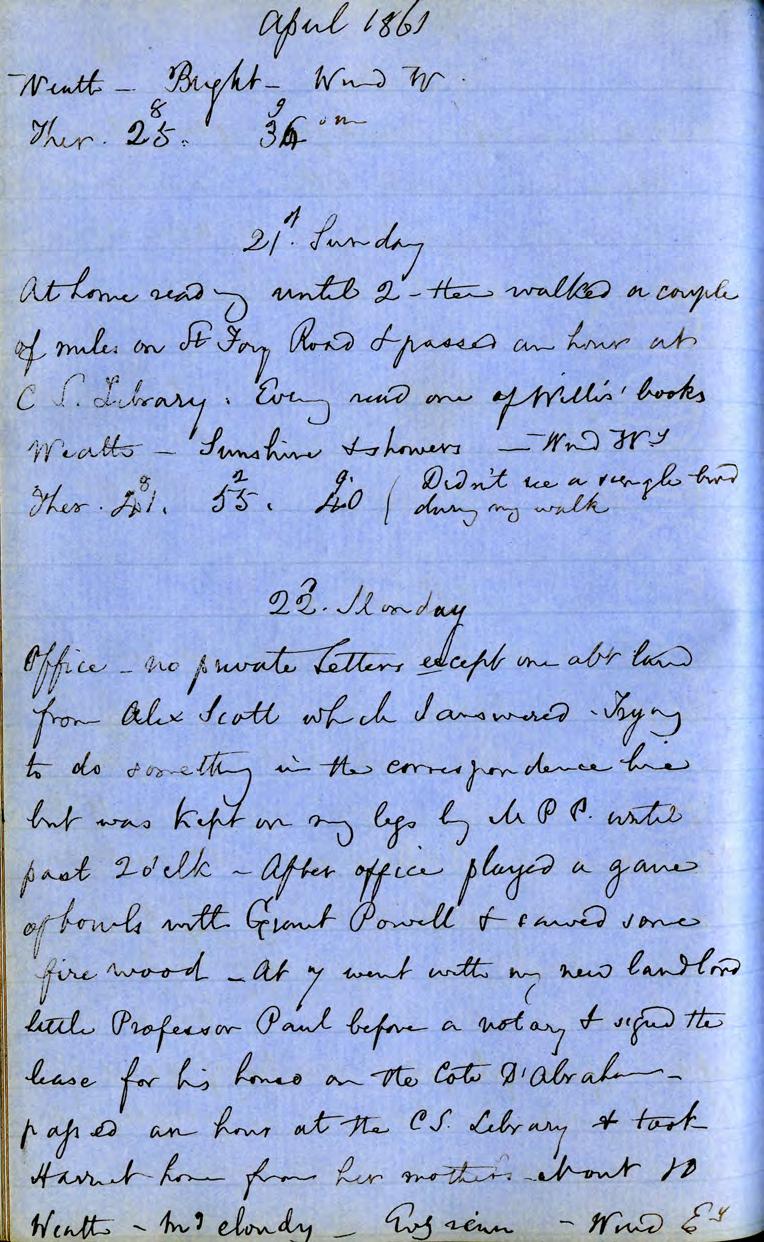 April 1861
Weath - Bright - Wind W.
8 9
Ther. 25. 34
21st. Sunday
At home reading until 2 - then walked a couple
of miles on St Foy Road & passed an hour at
C S. Library. Eveng read one of Willis' books
Weath - Sunshine & showers - Wind Wy
8 2 9.
Ther. 41. 55. 40 ( Didn't see a single bird
during my walk
22d. Monday
Office - no private Letters except one abt land
from Alex Scott which I answered - Trying
to do something in the correspondence line
but was kept on my legs by M P P. until
past 2 o'clk - After office played a game
of bowls with Grant Powell & sawed some
fire wood - At 7 went with my new landlord
little Professor Paul before a notary & signed the
lease for his house on the Cote D'Abraham -
passed an hour at the C.S. Library & took
Harriet home from her mothers about 10
Weath - Mg cloudy - Evg rain - Wind Ey